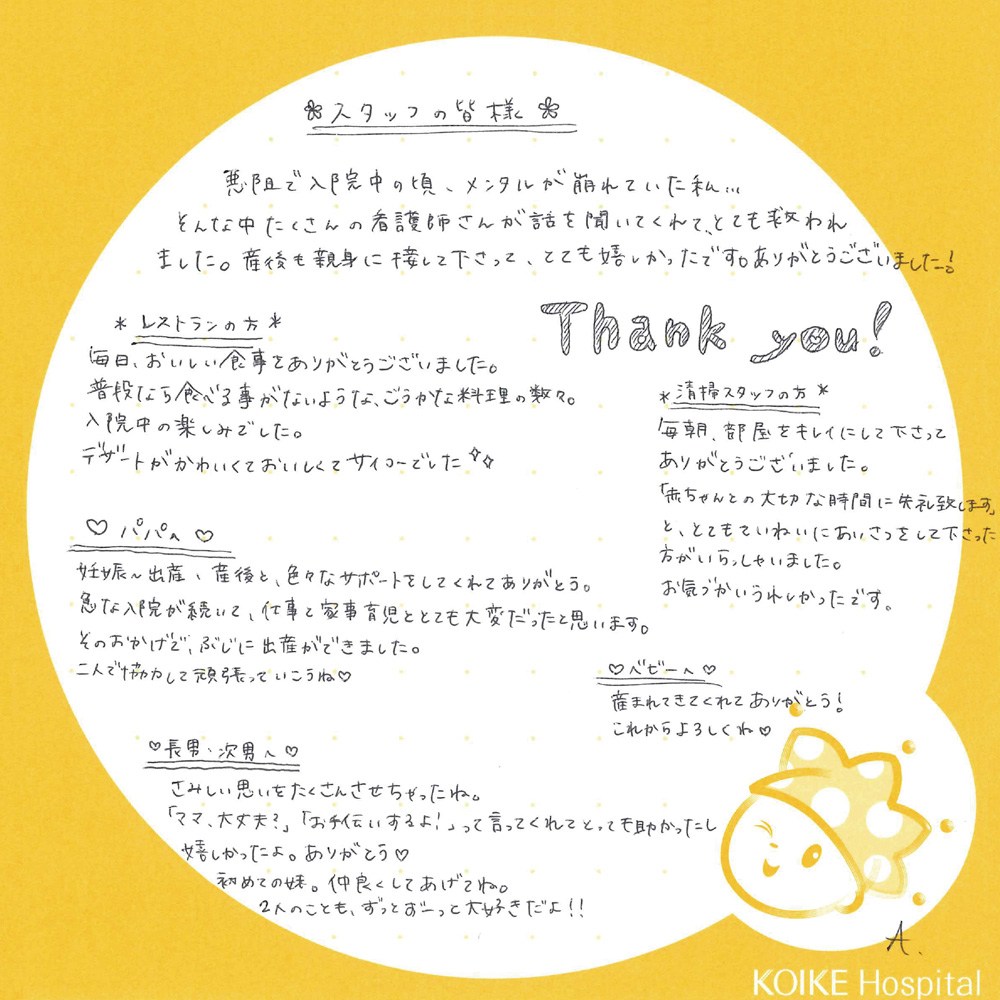 スタッフの皆様
悪阻で入院中の頃、メンタルが崩れていた私…
そんな中たくさんの看護師さんが話を聞いてくれて、とても救われ
ました。産後も親身に接して下さって、とても嬉しかったです。ありがとうございました!
Thank you!
*レストランの方*
毎日、おいしい食事をありがとうございました。
普段なら食べる事がないような、ごうかな料理の数々。
入院中の楽しみでした。
デザートがかわいくておいしくてサイコーでした
*清掃スタッフの方*
毎朝、部屋をキレイにして下さって
ありがとうございました。
「赤ちゃんとの大切な時間に失礼致します」
と、とてもていねいにあいさつをして下さった
方がいらっしゃいました。
お気づかいうれしかったです。
♡パパへ♡
妊娠〜出産、産後と、色々なサポートをしてくれてありがとう。
急な入院が続いて、仕事と家事育児ととても大変だったと思います。
そのおかげで、ぶじに出産ができました。
二人で協力して頑張っていこうね♡
♡ベビーへ♡
産まれてきてくれてありがとう!
これからよろしくね♡
♡長男、次男へ♡
さみしい思いをたくさんさせちゃったね。
「ママ、大丈夫?」「お手伝いするよ!」って言ってくれてとっても助かったし
嬉しかったよ。ありがとう♡
初めての妹。仲良くしてあげてね。
2人のことも、ずっとずーっと大好きだよ!!
A.
KOIKE Hospital